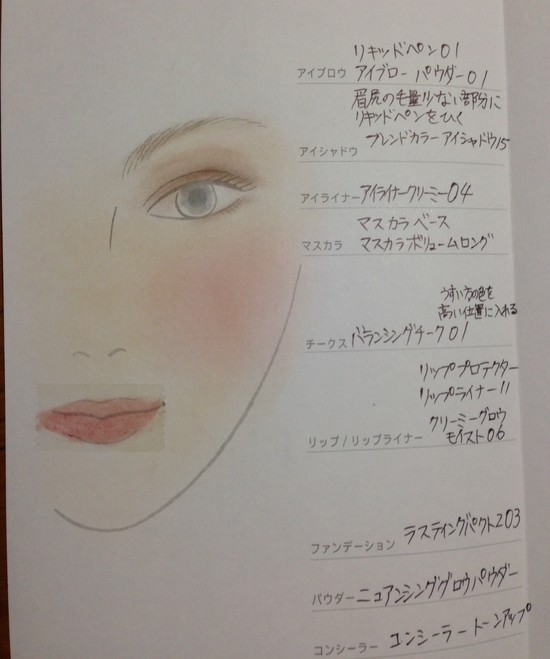 リキッドペン01
アイブロウ アイブローパウダー01
眉尻の毛量少ない部分に
リキッドペンをひく
ブレンドカラーアイシャドウ15
アイシャドウ
アイライナー アイライナークリーミー04
マスカラベース
マスカラ マスカラボリュームロング
うすい方の色を
高い位置に入れる
チークス バランシングチーク01
リッププロテクター
リップライナー11
クリーミーグロウ
モイスト06
リップ/リップライナー
ファンデーション ラスティングパクト203
パウダー ニュアンシンググロウパウダー
コンシーラー コンシーラートーンアップ